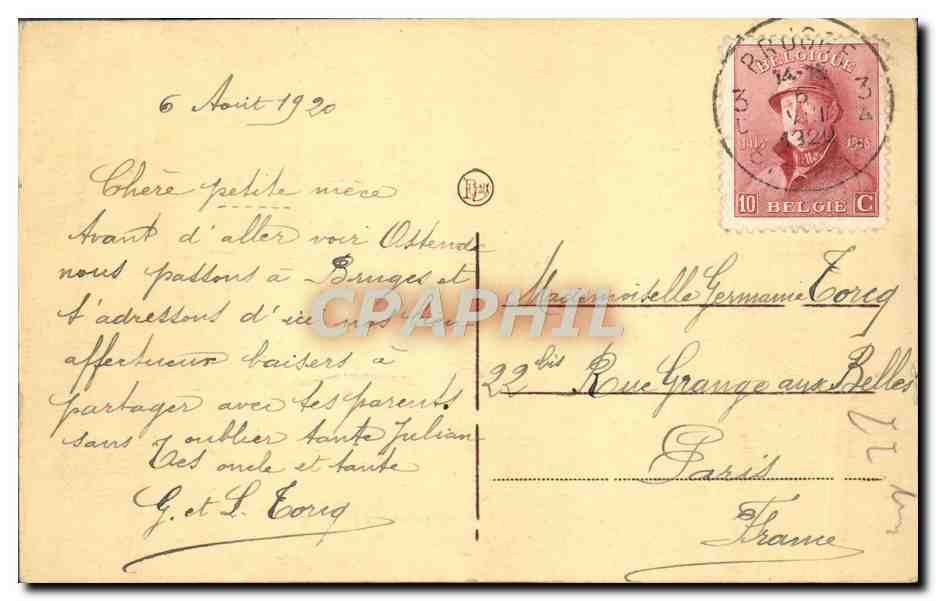 6 Août 1920
Chère petite nièce
Avant d'aller voir Ostende
nous passons à Bruges et
t'adressons d'ici nos plus
affectueux baisers à
partager avec tes parents
sans oublier tante Julian
Tes oncle et tante
G. et L. Torcq
BRUGGE
3 3
14-
VIII
1920
BELGIQUE
10 BELGIE C
Mademoiselle Germaine Torcq
22 bis Rue Grange aux Belles
Paris
France
CPAPHIL